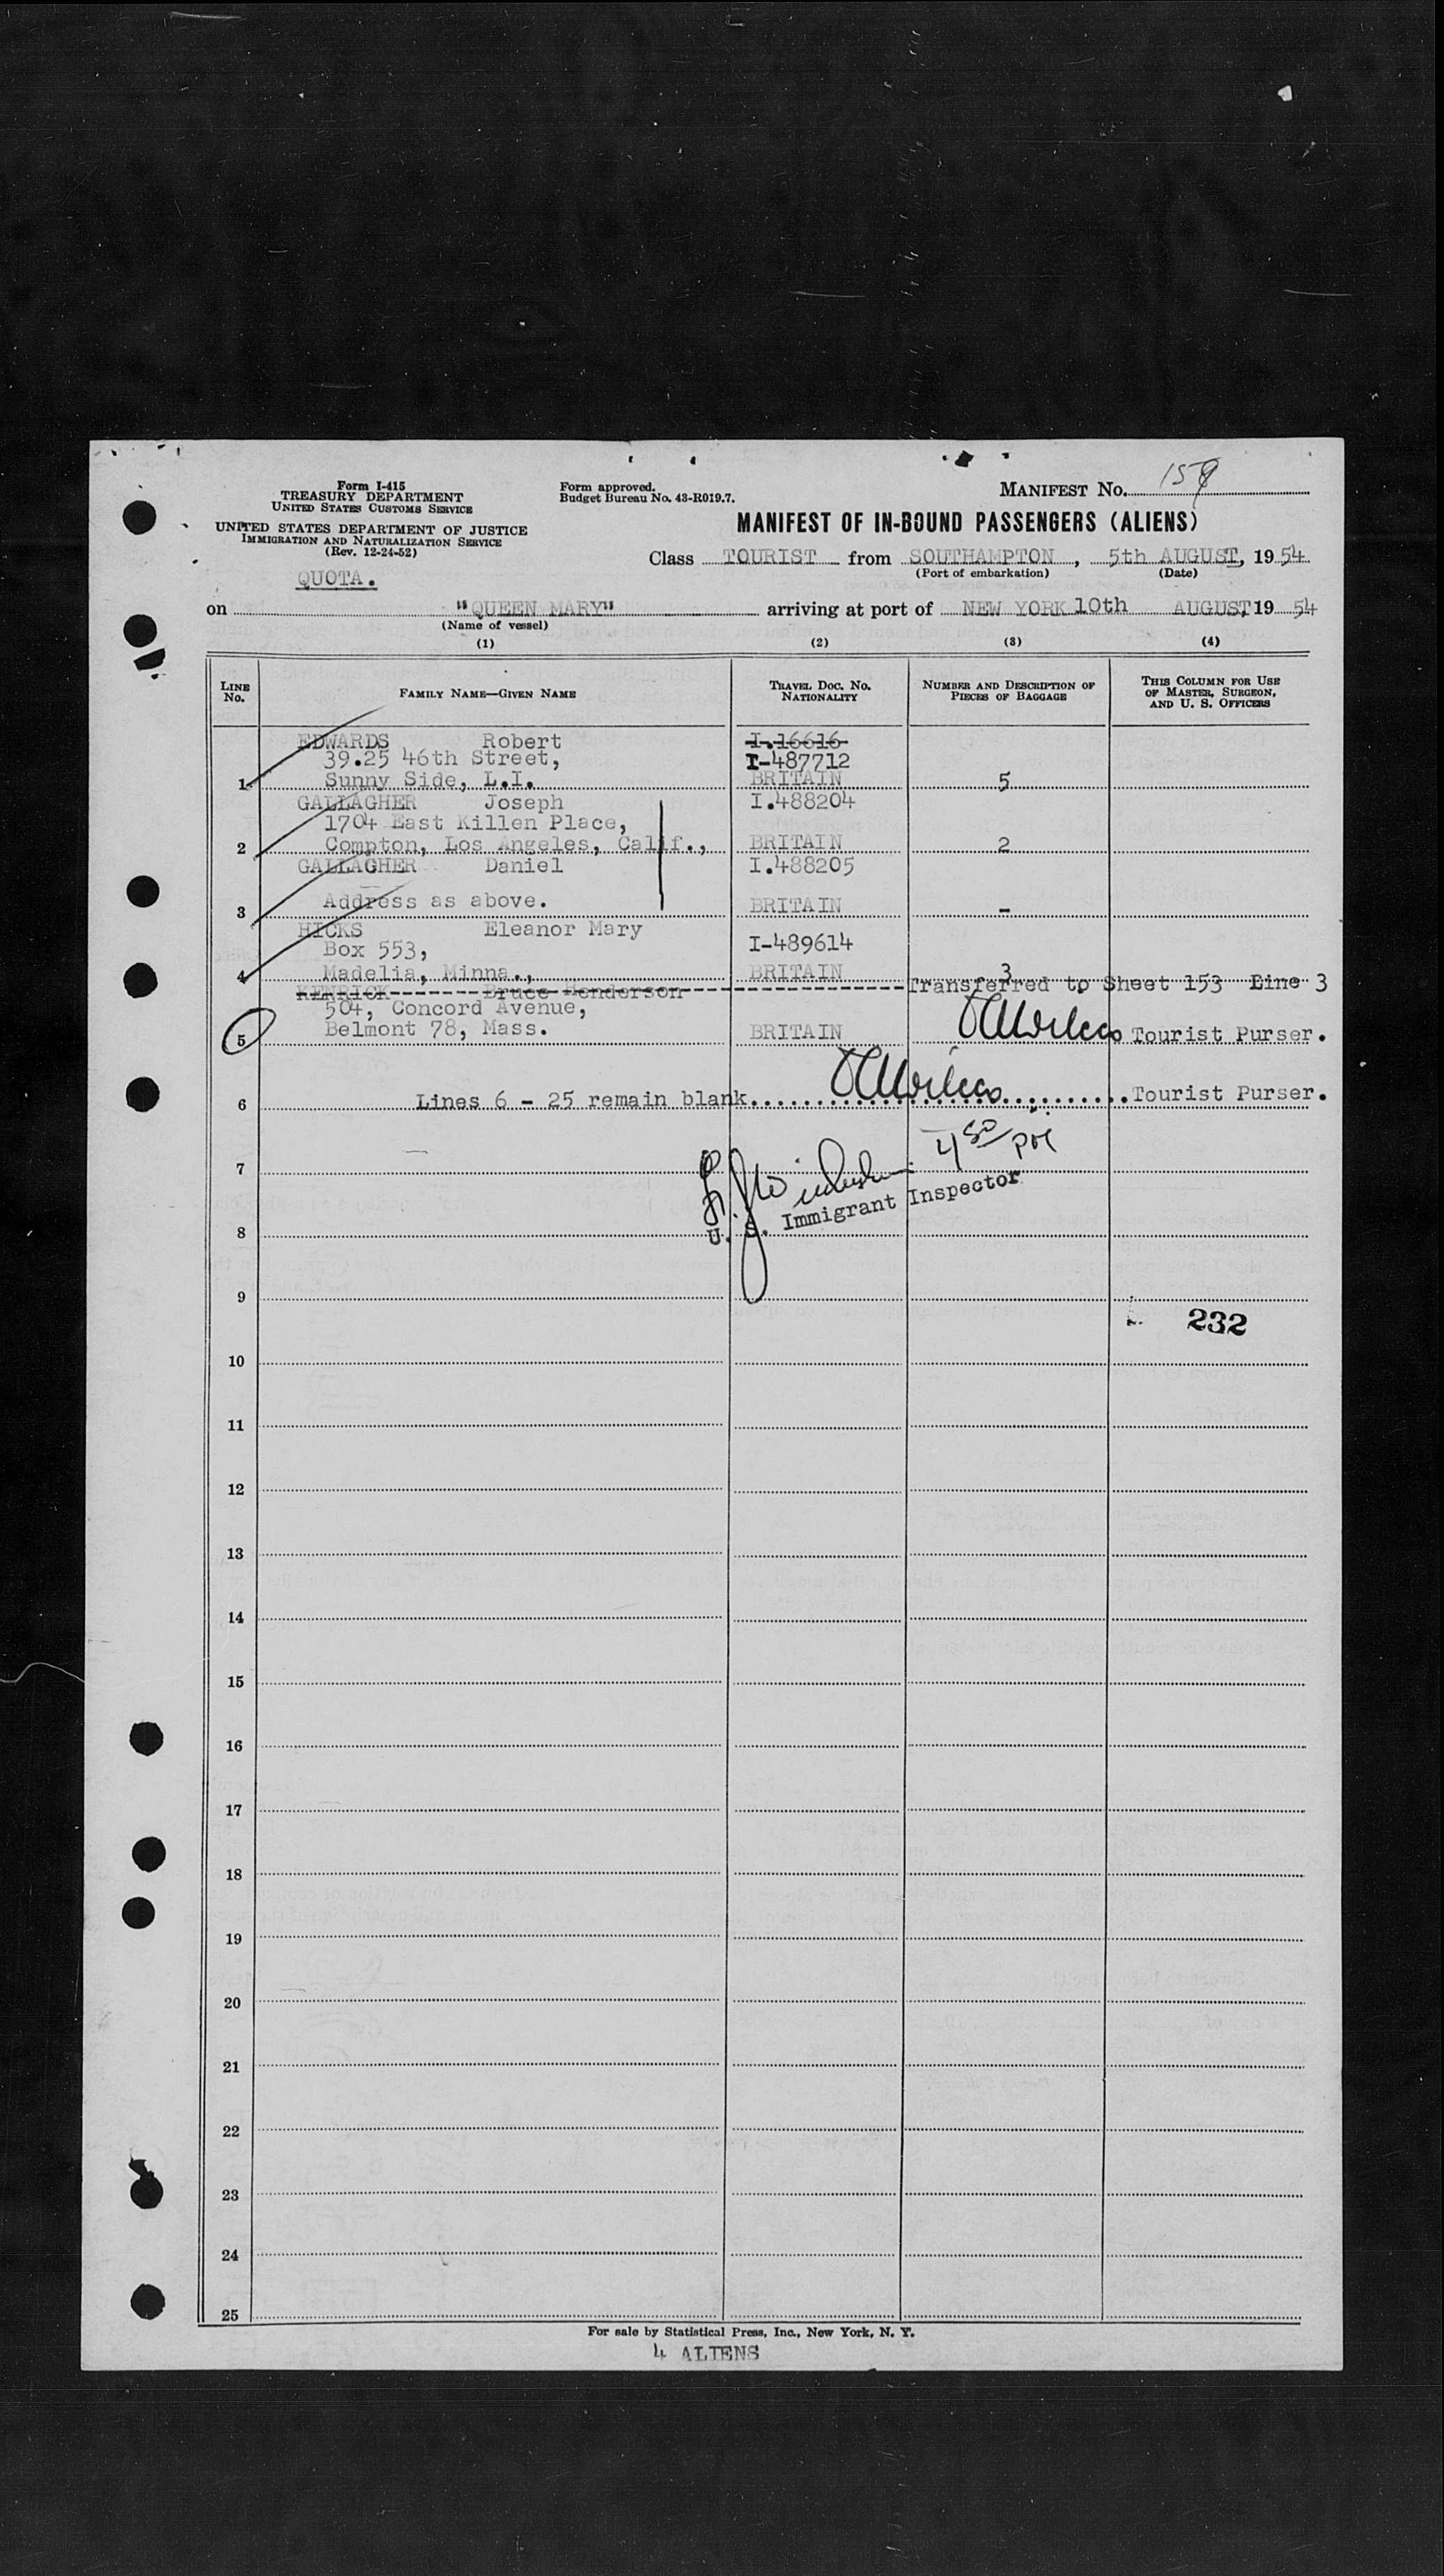 Form I-415
TREASURY DEPARTMENT
UNITED STATES CUSTOMS SERVICE
UNITED STATES DEPARTMENT OF JUSTICE
IMMIGRATION AND NATURALIZATION SERVICE
(Rev. 12-24-52)
QUOTA.
Form approved.
Budget Bureau No. 43-R019.7.
MANIFEST NO.
MANIFEST OF IN-BOUND PASSENGERS (ALIENS)
Class TOURIST from SOUTHAMPTON, 5th AUGUST, 1954
(Port of embarkation) (Date)
on "QUEEN MARY" arriving at port of NEW YORK 10th AUGUST, 1954
(Name of vessel)
(1) (2) (3) (4)
LINE NO. FAMILY NAME—GIVEN NAME TRAVEL DOC. NO. NATIONALITY NUMBER AND DESCRIPTION OF PIECES OF BAGGAGE THIS COLUMN FOR USE OF MASTER, SURGEON, AND U. S. OFFICERS
EDWARDS Robert I.16616
39.25 46th Street, I-487712
1 Sunny Side, L.I. BRITAIN 5
GALLAGHER Joseph I.488204
1704 East Killen Place,
2 Compton, Los Angeles, Calif., BRITAIN 2
GALLAGHER Daniel I.488205
3 Address as above. BRITAIN -
HICKS Eleanor Mary
Box 553, I-489614
4 Madelia, Minna., BRITAIN 3
KENRICK Bruce Henderson Transferred to Sheet 153 Line 3
504, Concord Avenue,
5 Belmont 78, Mass. BRITAIN Tourist Purser.
6 Lines 6 - 25 remain blank. Tourist Purser.
4 50 PM
7
U. S. Immigrant Inspector
8
9
232
10
11
12
13
14
15
16
17
18
19
20
21
22
23
24
25
For sale by Statistical Press, Inc., New York, N. Y.
4 ALIENS